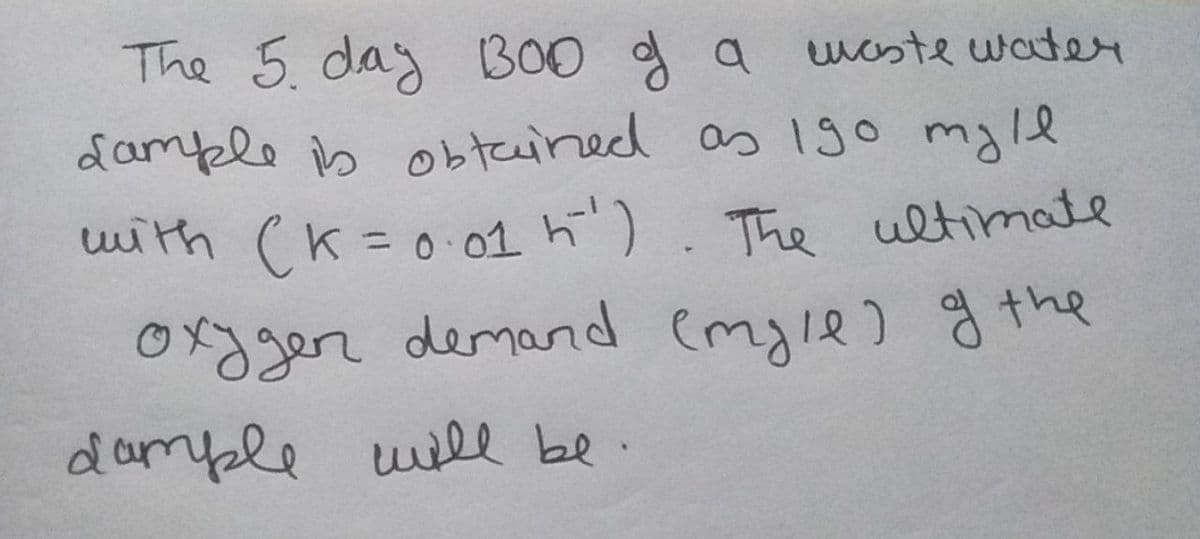 The 5. day BOD of a waste water
sample is obtained as 190 mg/l
with (K = 0.01 h⁻¹). The ultimate
oxygen demand (mg/l) of the
sample will be.